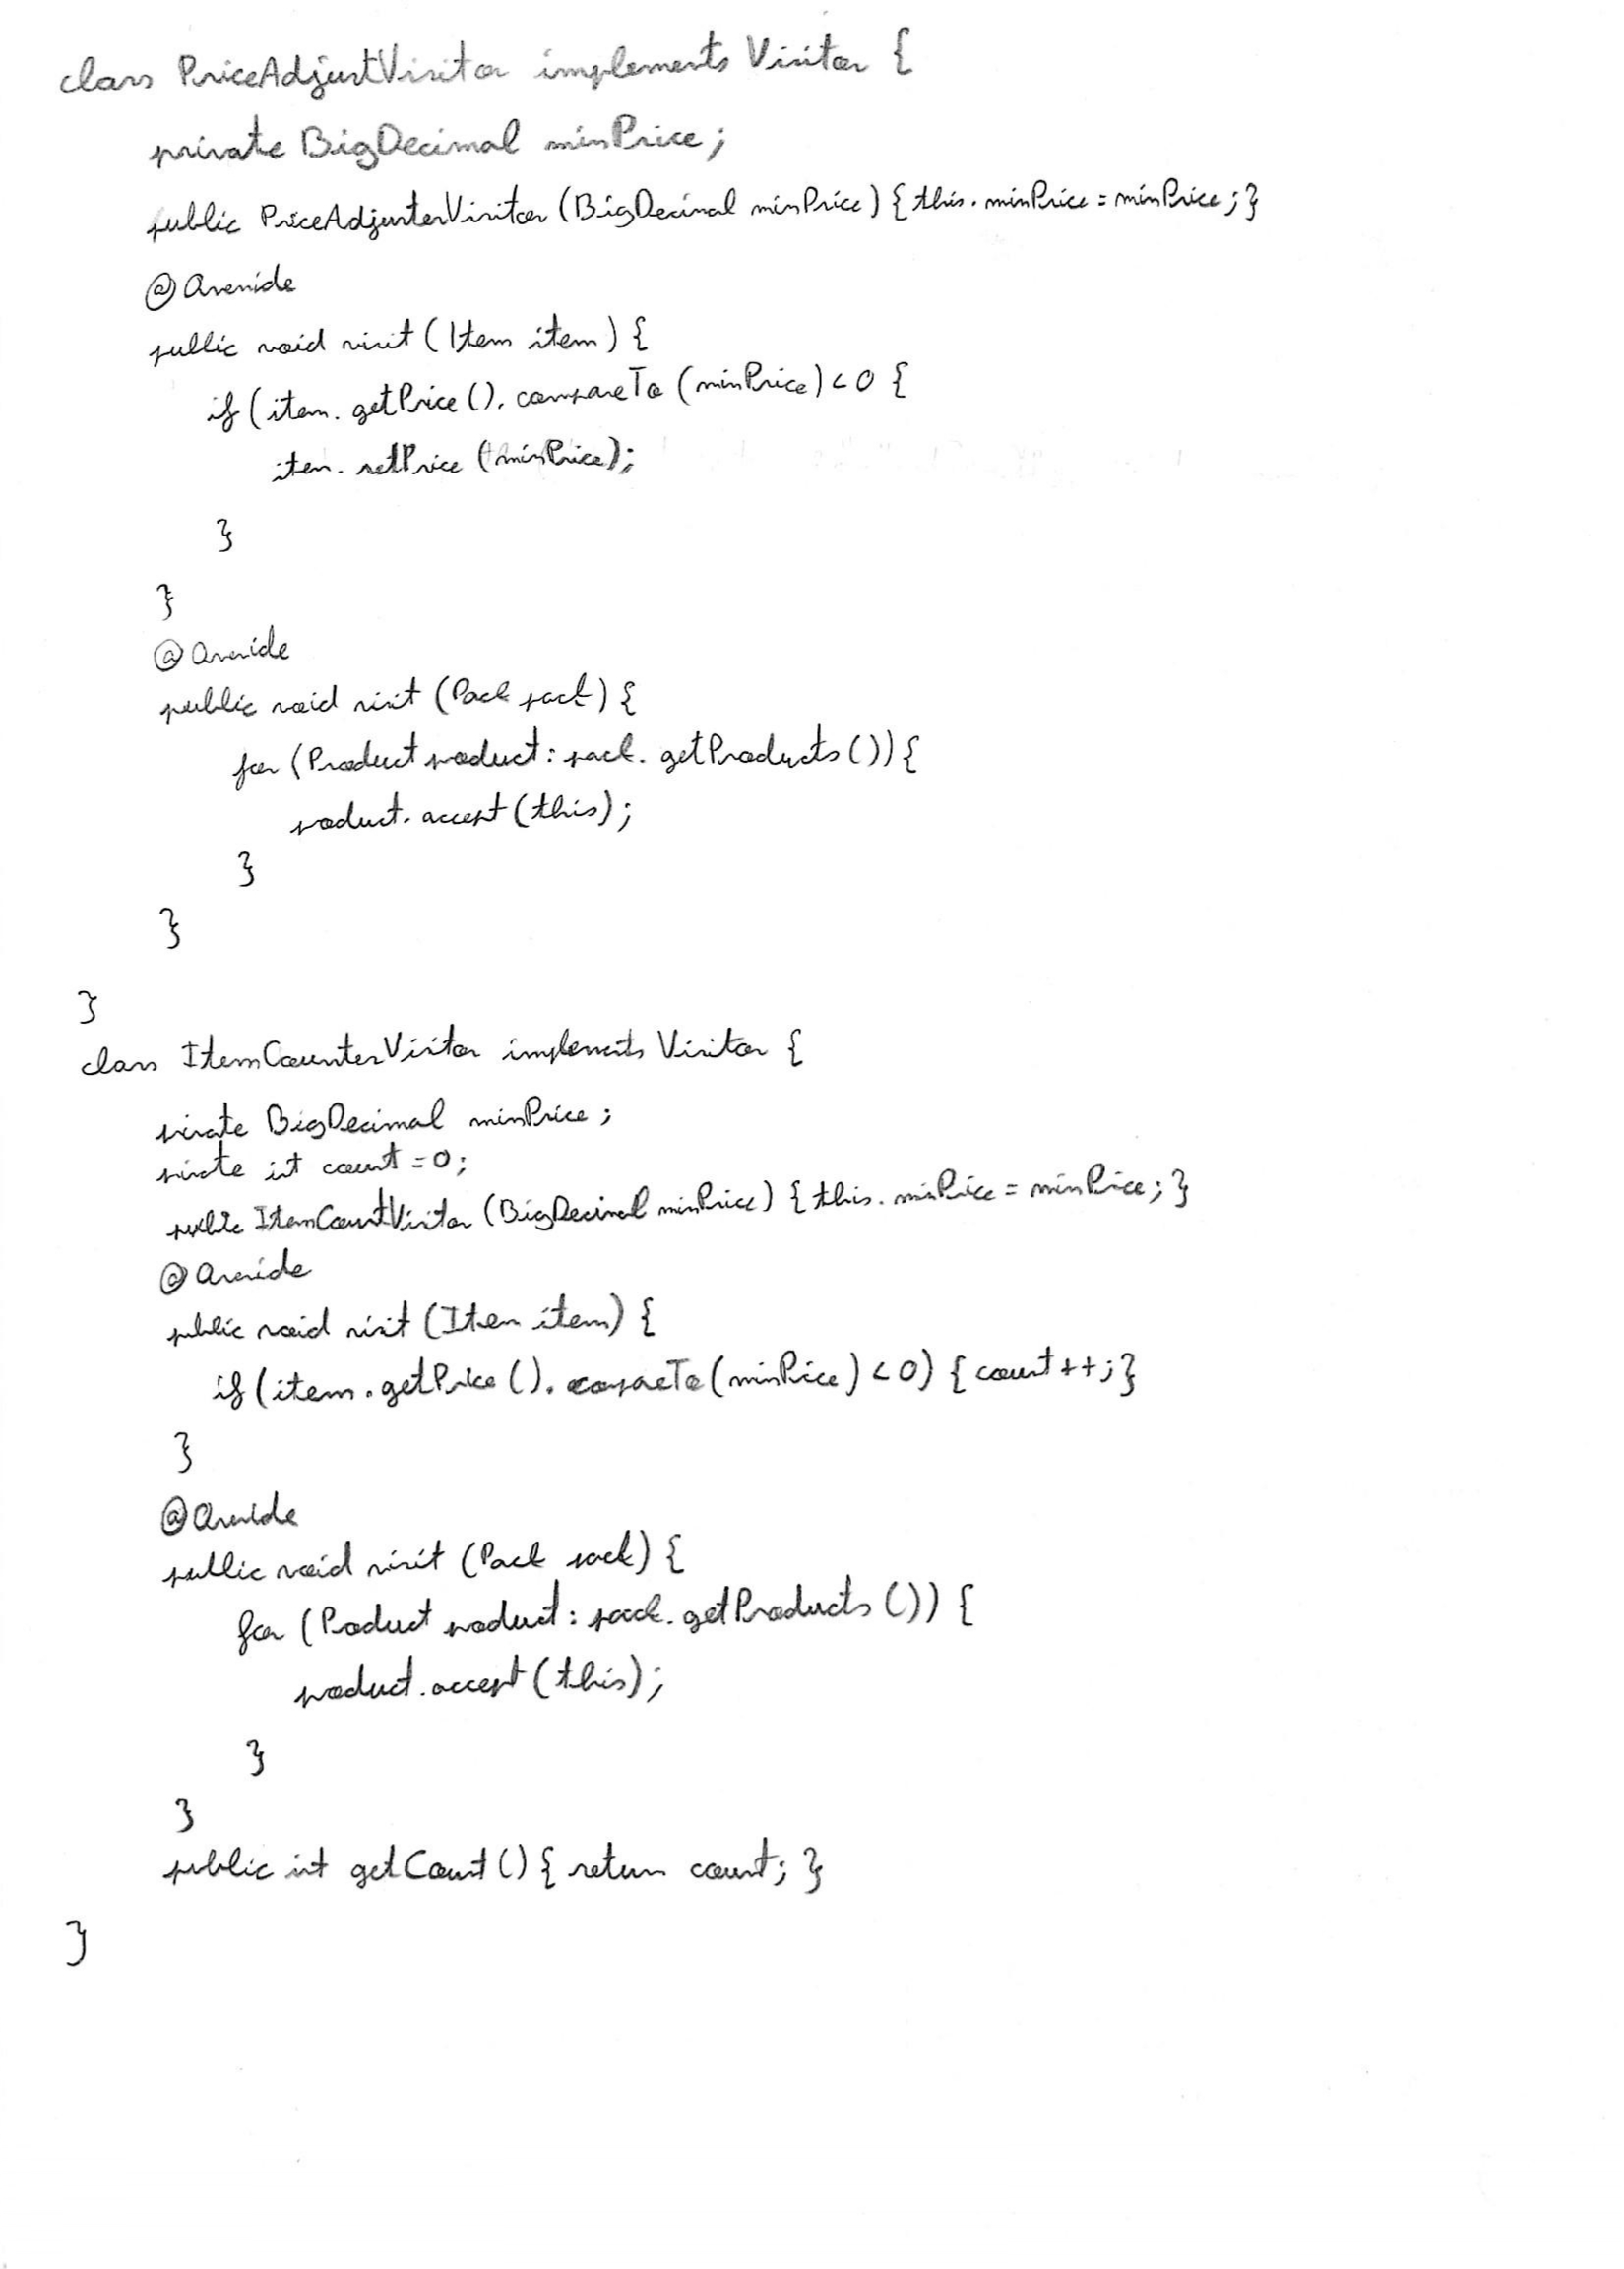 class PriceAdjustVisitor implements Visitor {
private BigDecimal minPrice;
public PriceAdjusterVisitor (BigDecimal minPrice) { this.minPrice = minPrice; }
@Override
public void visit (Item item) {
if (item.getPrice().compareTo (minPrice) < 0 {
item.setPrice (minPrice);
}
}
@Override
public void visit (Pack pack) {
for (Product product : pack.getProducts()) {
product.accept (this);
}
}
}
class ItemCounterVisitor implements Visitor {
private BigDecimal minPrice;
private int count = 0;
public ItemCountVisitor (BigDecimal minPrice) { this.minPrice = minPrice; }
@Override
public void visit (Item item) {
if (item.getPrice().compareTo (minPrice) < 0) { count++; }
}
@Override
public void visit (Pack pack) {
for (Product product : pack.getProducts()) {
product.accept (this);
}
}
public int getCount() { return count; }
}